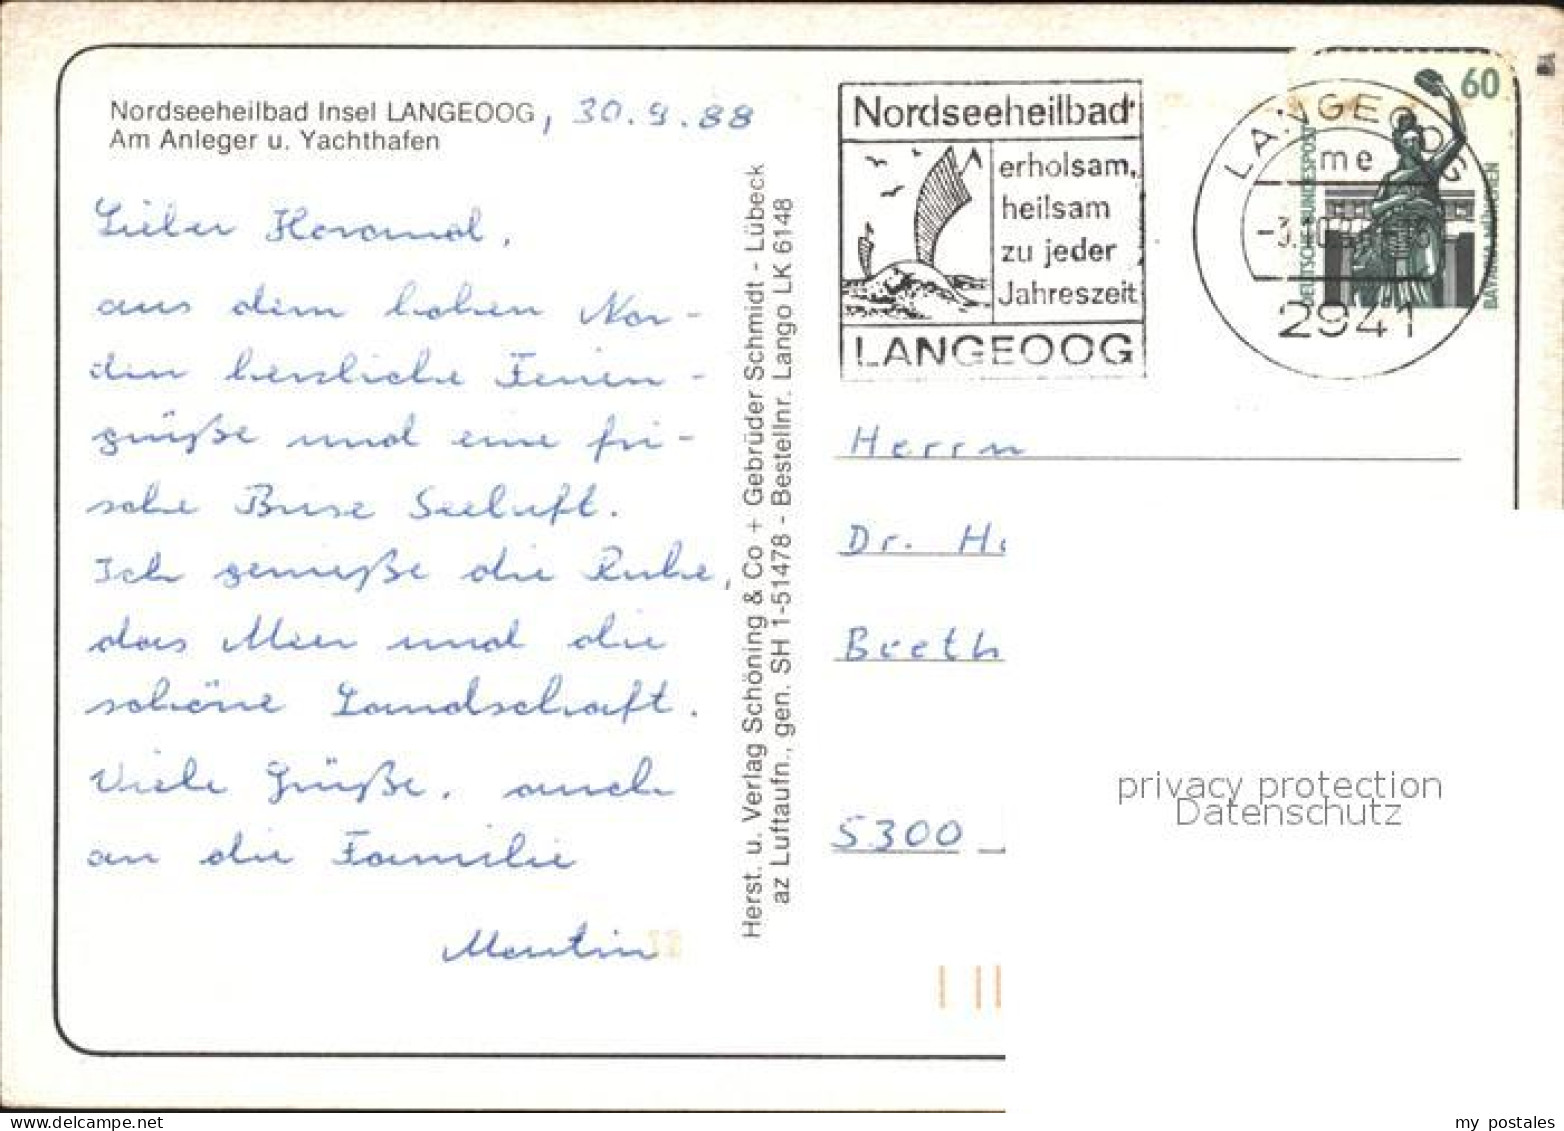 Nordseeheilbad Insel LANGEOOG, 30.9.88
Am Anleger u. Yachthafen
Lieber
aus dem hohen Nor-
den herzliche Ferien-
grüße und eine fri-
sche Brise Seeluft.
Ich genieße die Ruhe,
das Meer und die
schöne Landschaft.
Viele Grüße, auch
an die Familie
Martin
Herst. u. Verlag Schöning & Co + Gebrüder Schmidt - Lübeck
az Luftaufn., gen. SH 1-51478 - Bestellnr. Lango LK 6148
Nordseeheilbad
erholsam,
heilsam
zu jeder
Jahreszeit
LANGEOOG
LANGEOOG
me
2941
60
DEUTSCHE BUNDESPOST
BAVARIA MÜNCHEN
Herrn
Dr.
Beeth
5300
privacy protection
Datenschutz
my postales